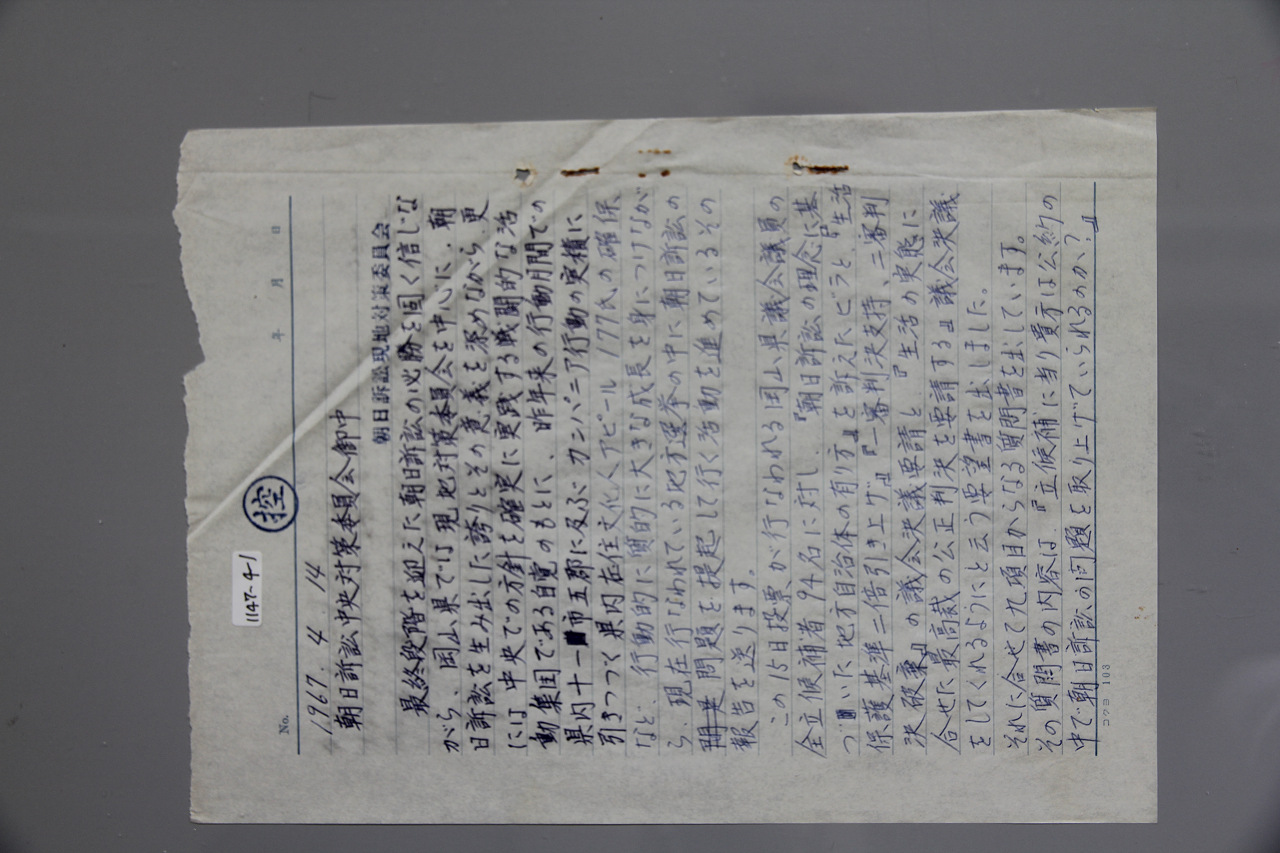 No.
年 月 日
控
1147-4-1
1967. 4. 14
朝日訴訟中央対策委員会御中
朝日訴訟現地対策委員会
最終段階を迎えた朝日訴訟の必勝を固く信じな
がら、岡山県では現地対策委員会を中心に、朝
日訴訟を生み出した誇りとその意義を深めながら、更
には中央での方針を確実に実践する戦闘的な活
動集団である自覚のもとに、昨年来の行動月間での
県内十一市五郡に及ぶカンパニア行動の実積に
引きつづく県内在住文化人アピール177氏の確保
など、行動的に質的に大きな成長を身につけなが
ら、現在行なわれている地方選挙の中に朝日訴訟の
問題を提起して行く活動を進めているその
報告を送ります。
この15日投票が行なわれる岡山県議会議員の
全立候補者94名に対し、『朝日訴訟の理念に基
づいた地方自治体の有り方』を訴えたビラと『生活
保護基準二倍引き上げ』『一審判決支持、二審判
決破棄』の議会決議要請と『生活の実態に
合せた最高裁の公正判決を要請する』議会決議
をしてくれるようにと云う要望書を出しました。
それに合せて九項目からなる質問書を出しています。
その質問書の内容は、『立候補に当り貴方は公約の
中で朝日訴訟の問題を取り上げていられるのか?』
コクヨ 103